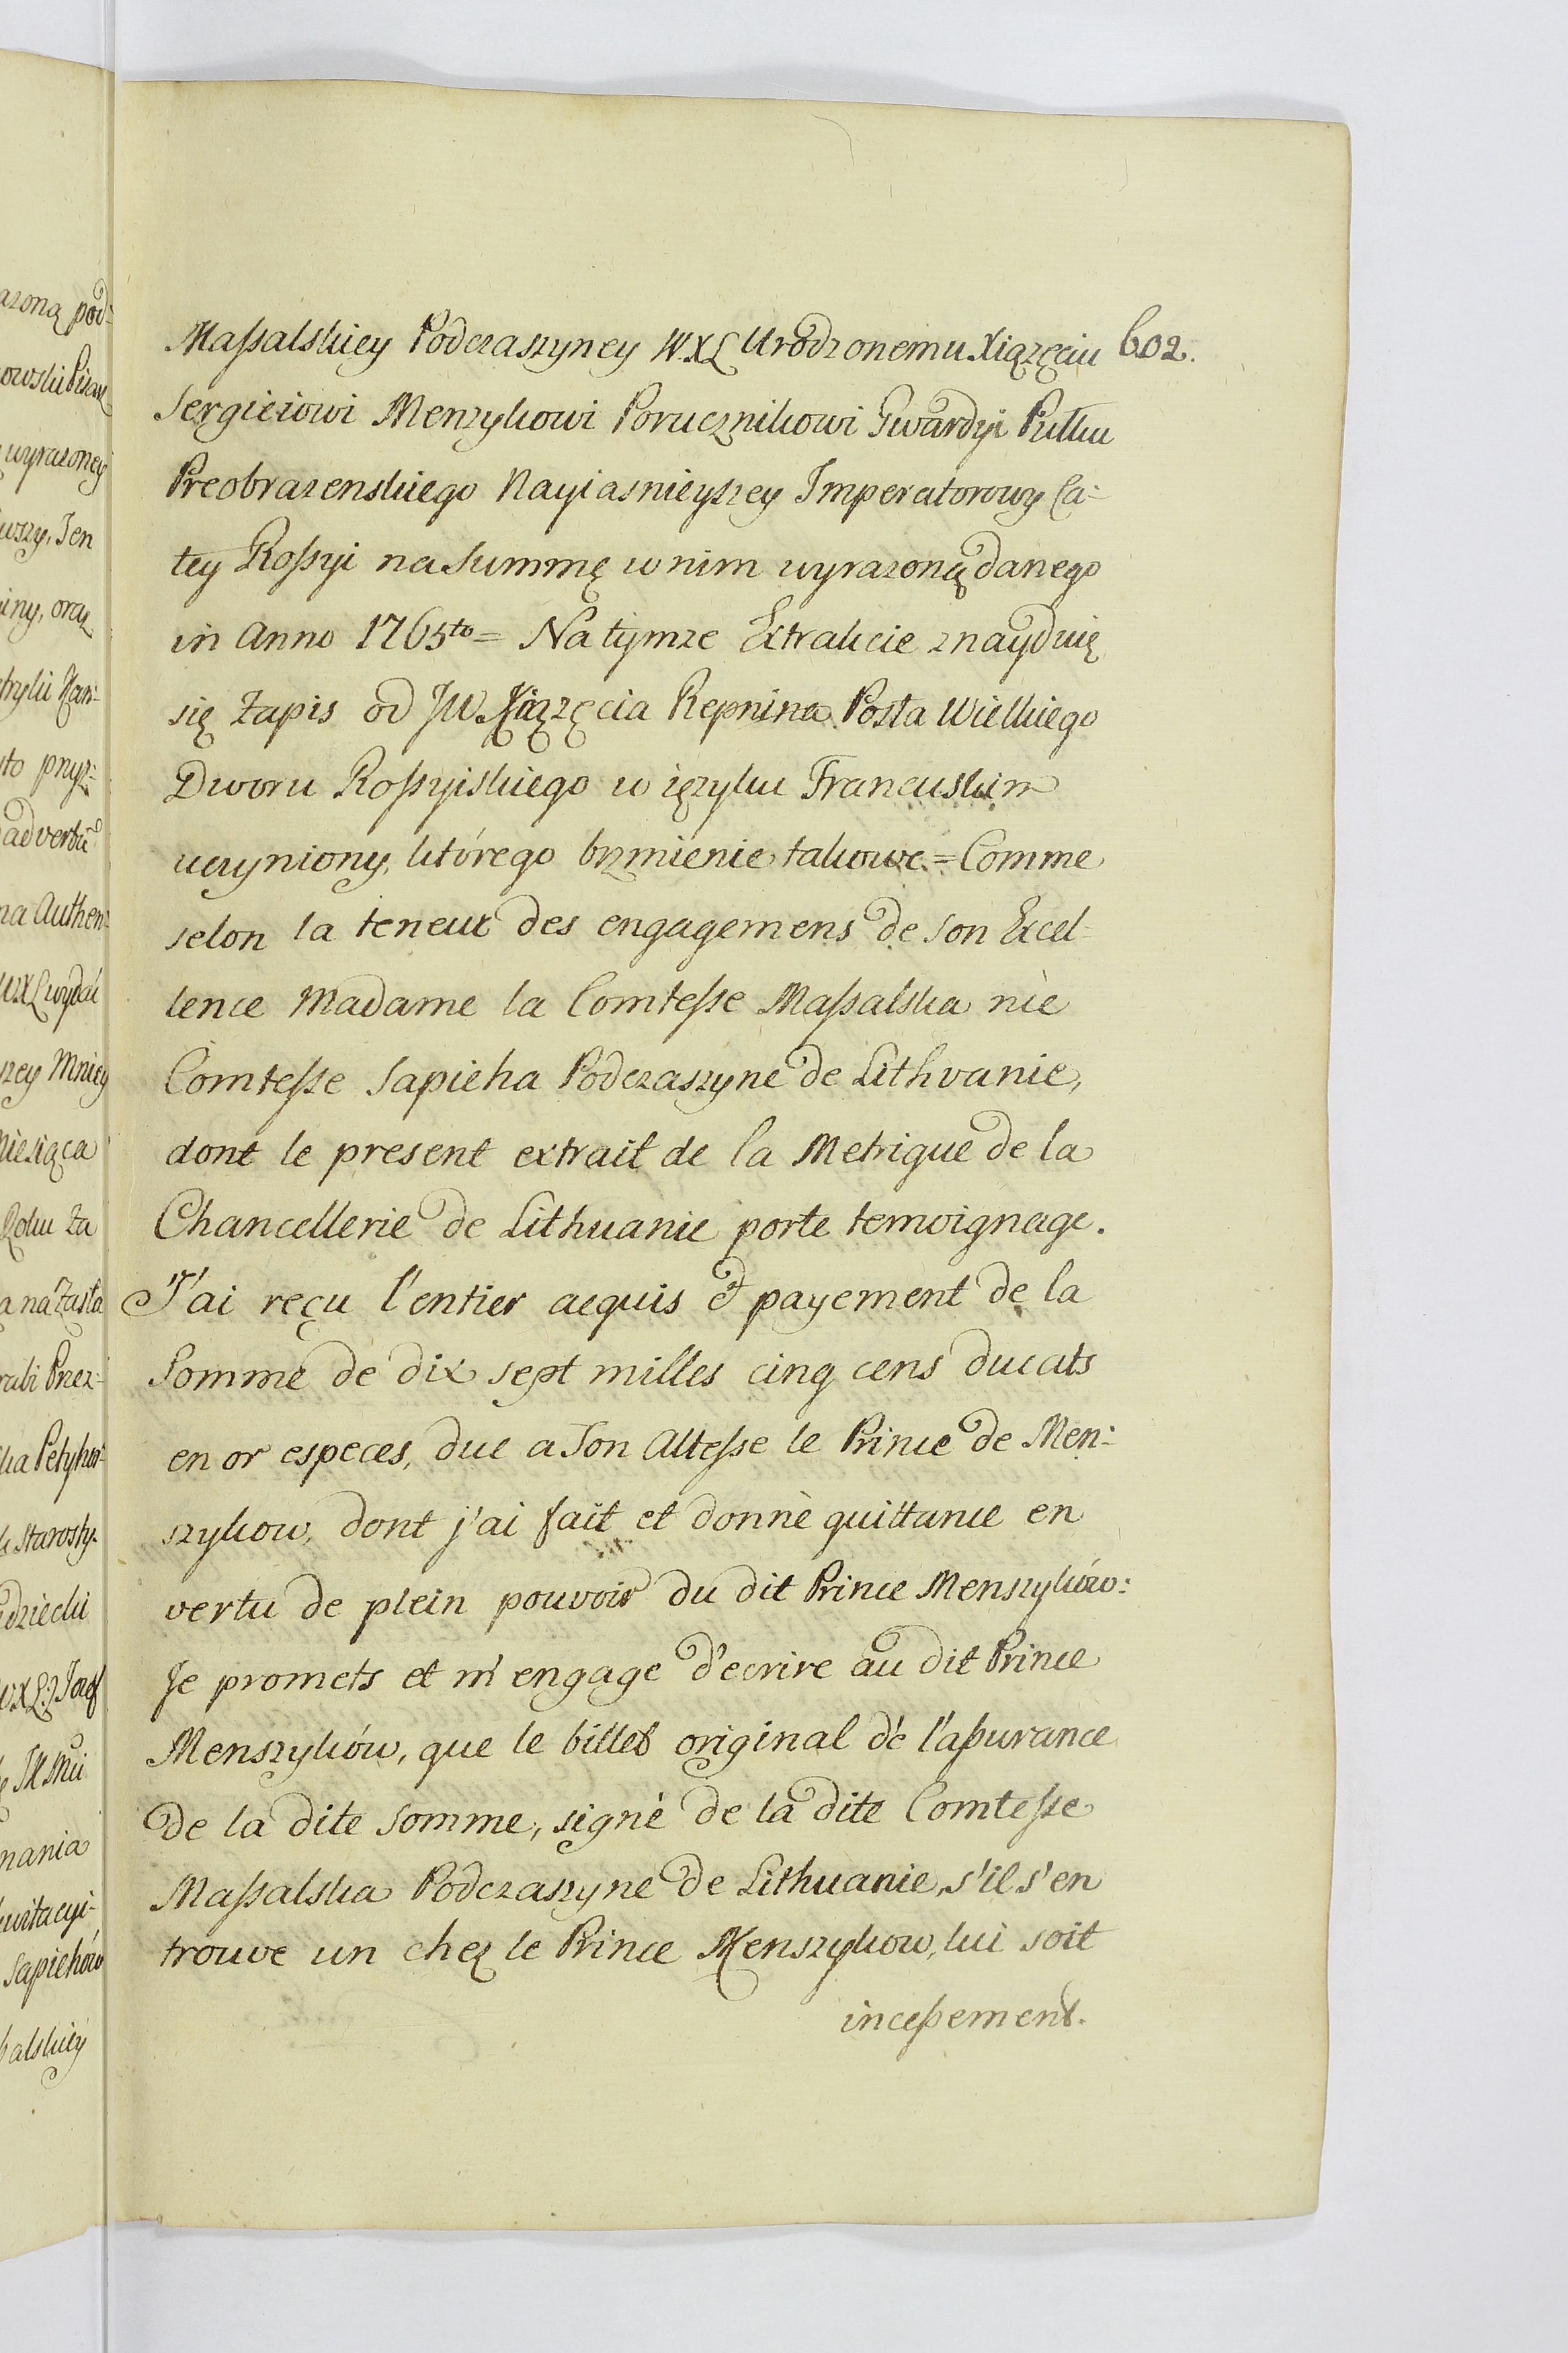 602.
Maßalskiey Podczaszyney W.X.L. Urodzonemu Xiązęciu
Sergieiowi Menzykowi Porucznikowi Gwardyi Pułku
Preobrazenskiego Nayiasnieyszey Imperatorowy Ca=
łey Roßyi na Summę w nim wyrazoną danego
in Anno 1765to = Na tymze Extrakcie znayduię
się Zapis od JW Xiązęcia Repnina Posła Wielkiego
Dworu Roßyiskiego w ięzyku Francuskim
uczyniony, którego brzmienie takowe = Comme
selon la teneur des engagemens de son Excel=
lence Madame la Comteße Maßalska nèe
Comteße Sapieha Podczaszyne de Lithvanie,
dont le present extrait de la Metrique de la
Chancellerie de Lithuanie porte temoignage.
J'ai reçu l'entier acquis et payement de la
Somme de dix sept milles cinq cens ducats
en or especes, due a Son Alteße le Prince de Men=
szykow, dont j'ai fait et donnè quittance en
vertu de plein pouvoir du dit Prince Menszyków:
Je promets et m'engage d'ecrire au dit Prince
Menszyków, que le billet original de l'aßurance
de la dite Somme, signè de la dite Comteße
Maßalska Podczaszyne de Lithuanie, s'il s'en
trouve un chez le Prince Menszykow, lui soit
inceßement.